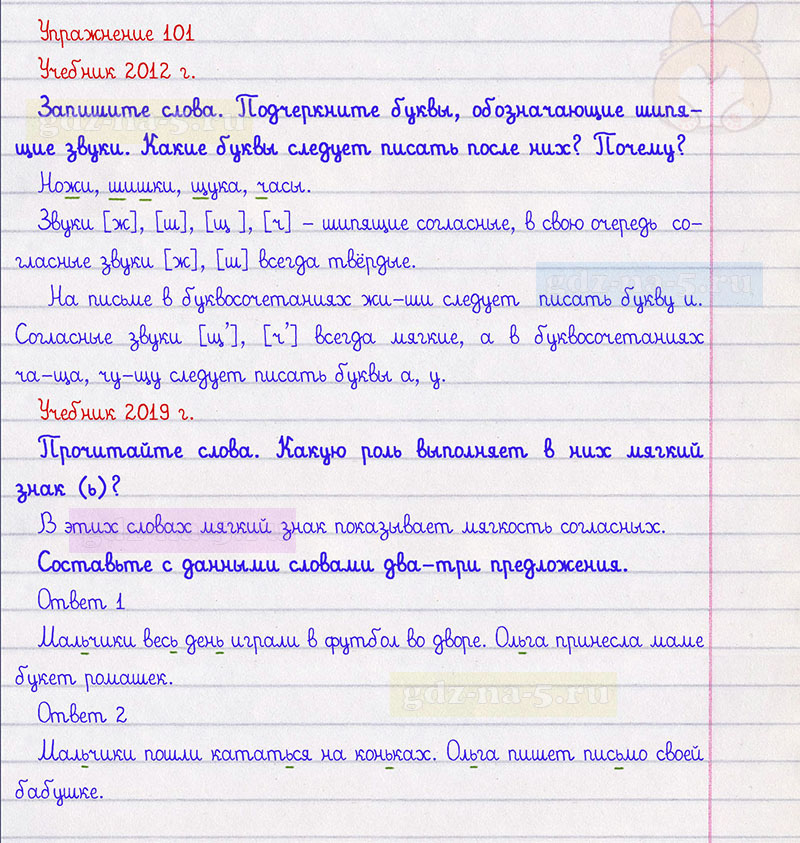 Упражнение 101
Учебник 2012 г.
Запишите слова. Подчеркните буквы, обозначающие шипя-
щие звуки. Какие буквы следует писать после них? Почему?
Ножи, шишки, щука, часы.
Звуки [ж], [ш], [щ ], [ч] – шипящие согласные, в свою очередь со-
гласные звуки [ж], [ш] всегда твёрдые.
На письме в буквосочетаниях жи-ши следует писать букву и.
Согласные звуки [щ’], [ч’] всегда мягкие, а в буквосочетаниях
ча-ща, чу-щу следует писать буквы а, у.
Учебник 2019 г.
Прочитайте слова. Какую роль выполняет в них мягкий
знак (ь)?
В этих словах мягкий знак показывает мягкость согласных.
Составьте с данными словами два-три предложения.
Ответ 1
Мальчики весь день играли в футбол во дворе. Ольга принесла маме
букет ромашек.
gdz-na-5.ru
Ответ 2
Мальчики пошли кататься на коньках. Ольга пишет письмо своей
бабушке.